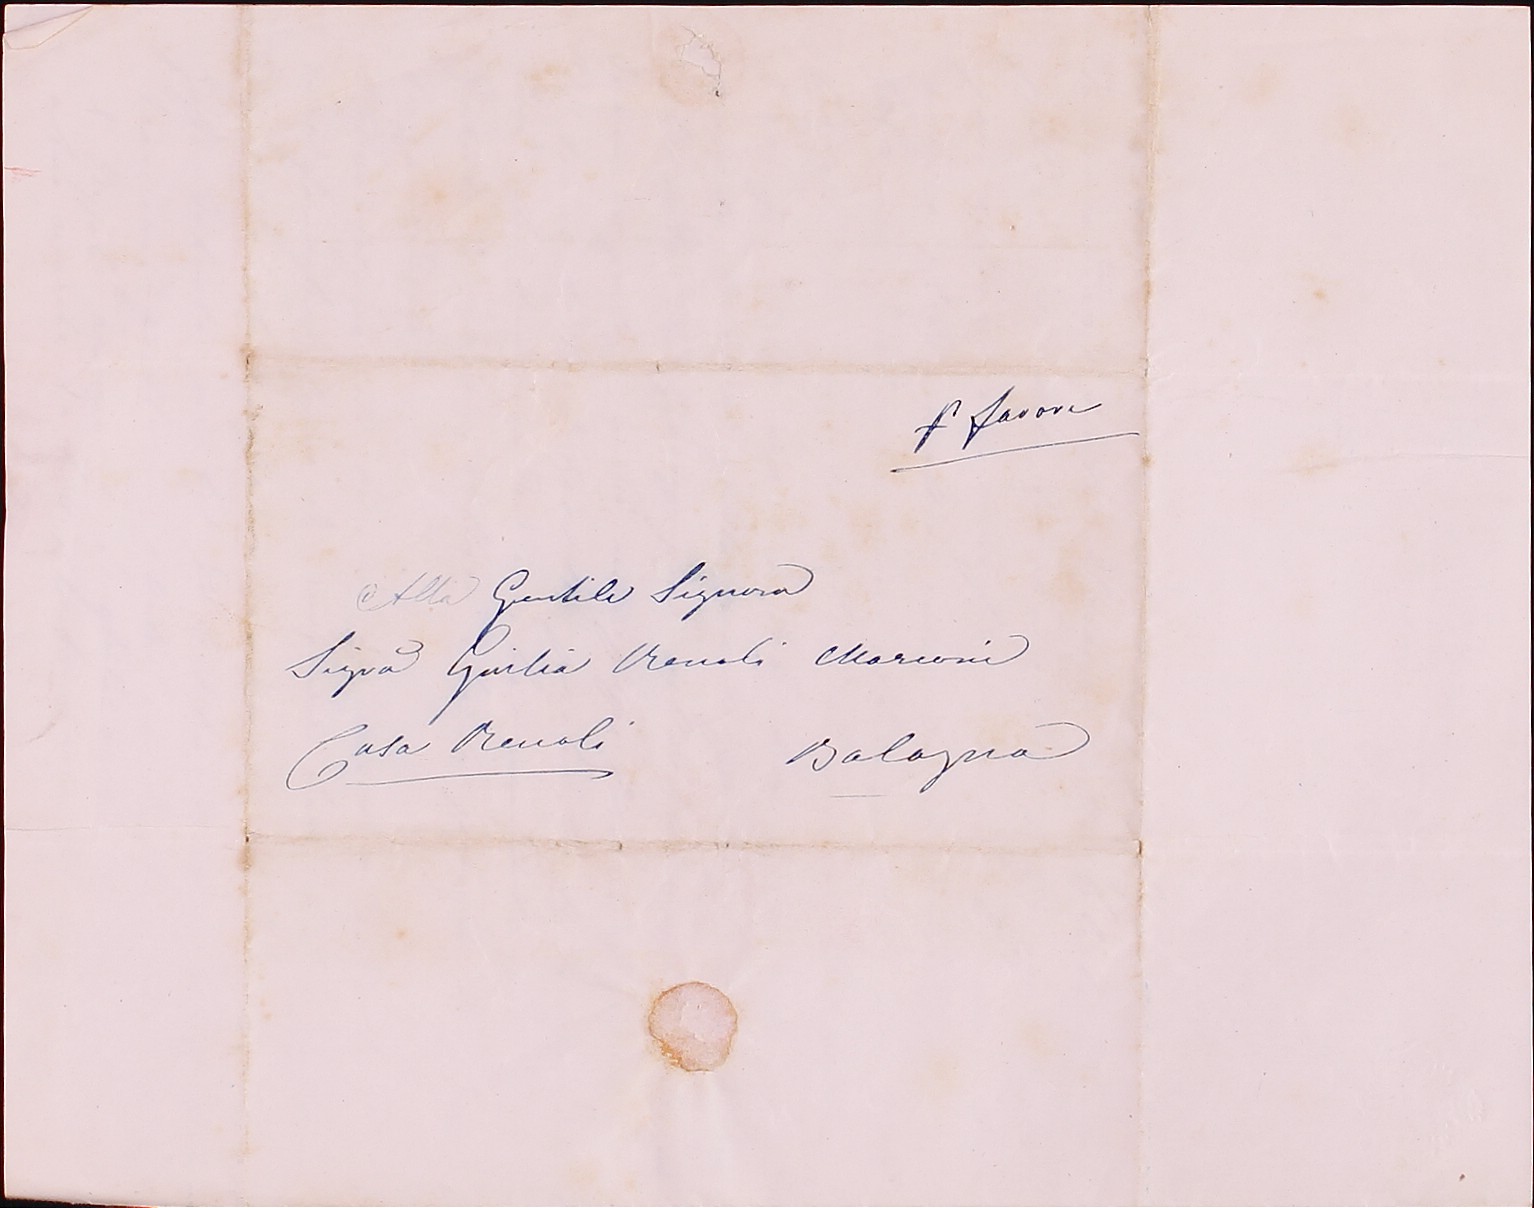 p favore
Alla Gentile Signora
Sigra Giulia Renoli Marconi
Casa Renoli Bologna